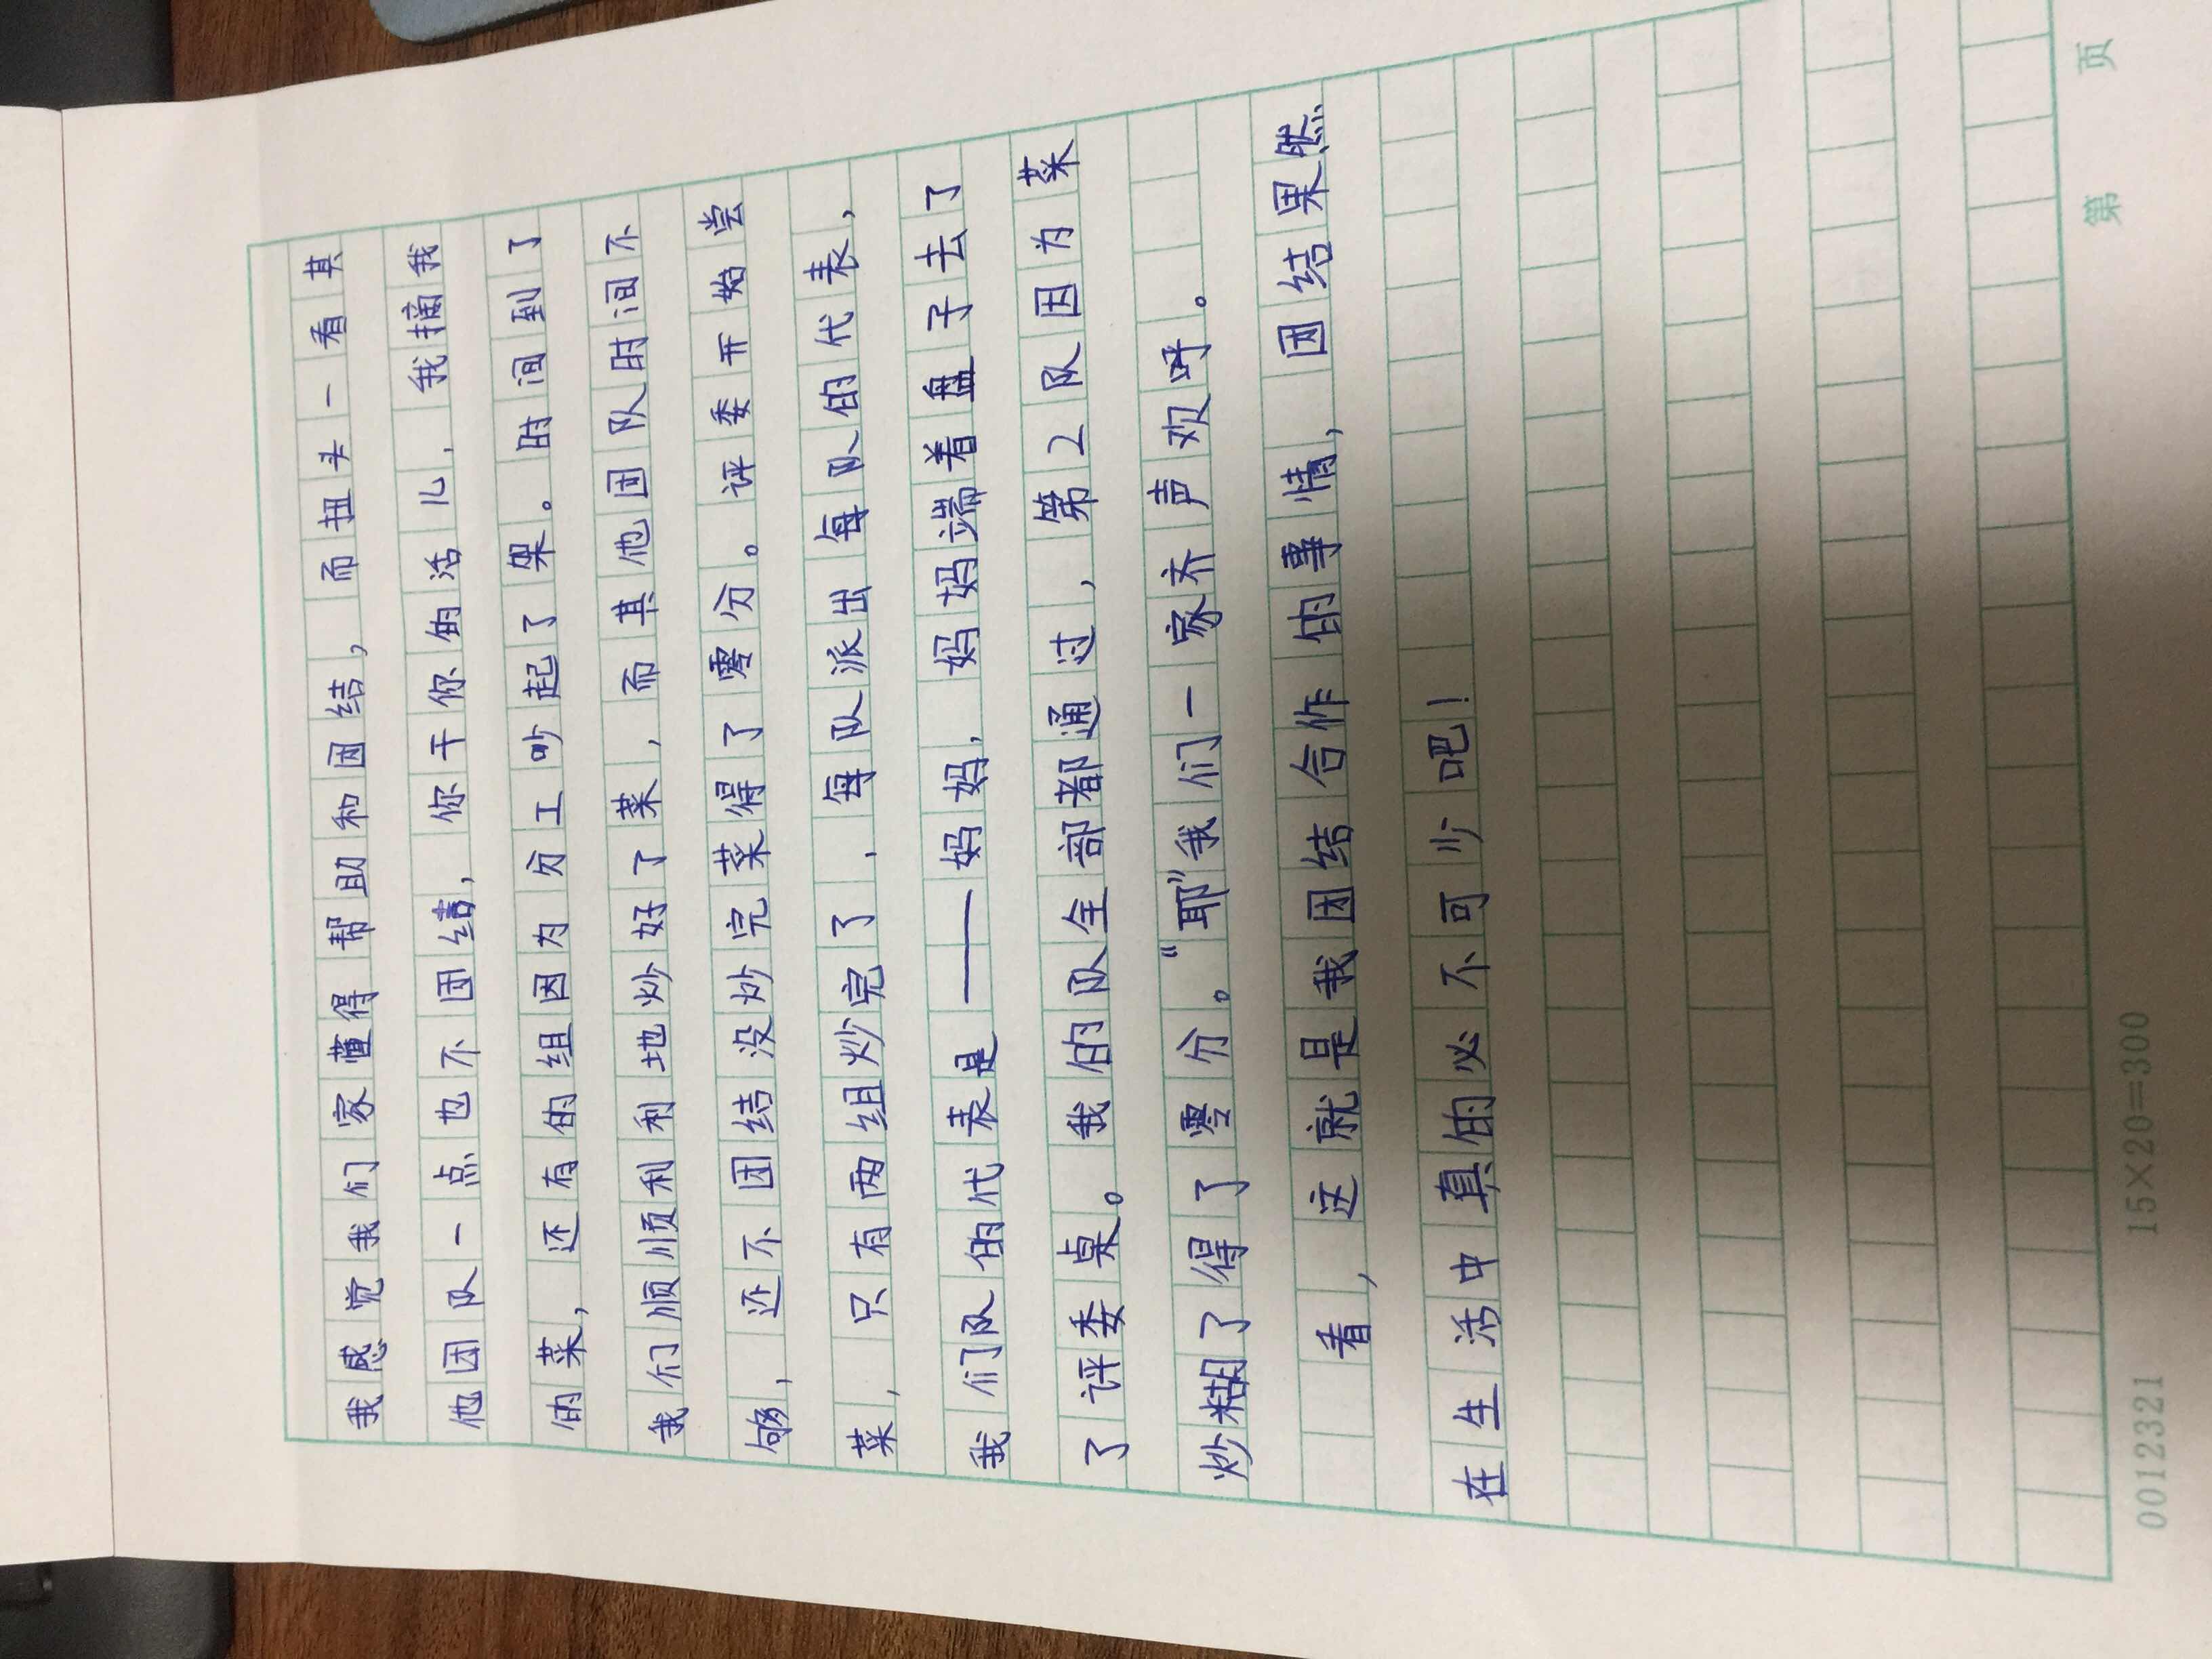 我感觉我们家懂得帮助和团结，而扭头一看其
他团队一点也不团结，你干你的活儿，我摘我
的菜，还有的组因为分工吵起了架。时间到了
我们顺顺利利地炒好了菜，而其他团队时间不
够，还不团结没炒完菜得了零分。评委开始尝
菜，只有两组炒完了，每队派出每队的代表，
我们队的代表是——妈妈，妈妈端着盘子去了
了评委桌。我的队全部都通过，第2队因为菜
炒糊了得了零分。“耶”我们一家齐声欢呼。
看，这就是我团结合作的事情，团结果然
在生活中真的必不可少吧！
0012321 15×20=300 第 页